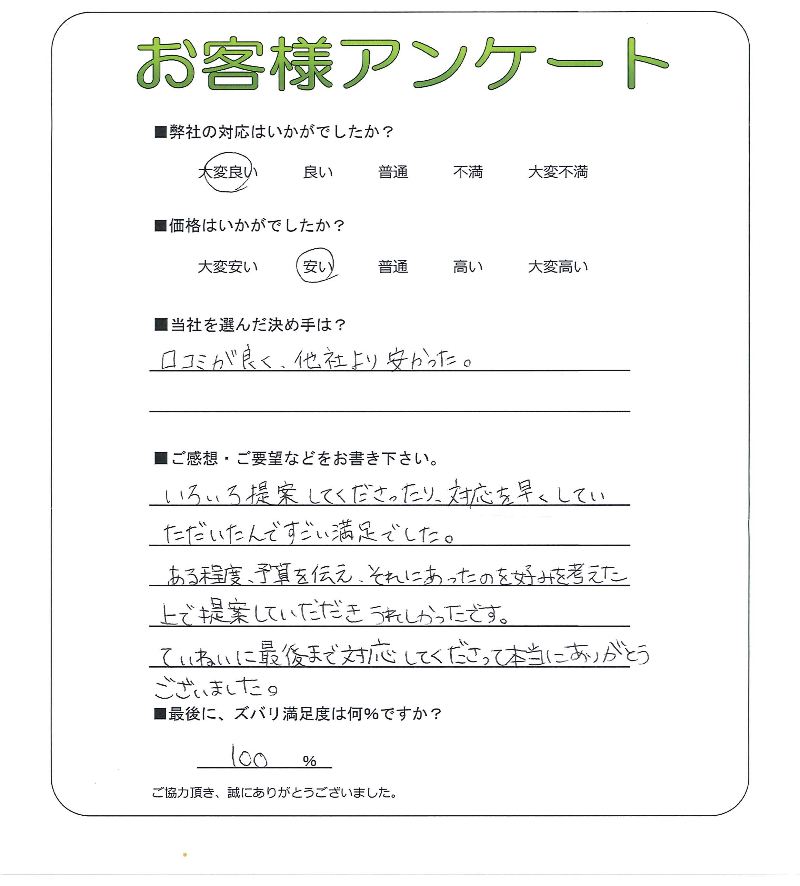 お客様アンケート
■弊社の対応はいかがでしたか？
大変良い 良い 普通 不満 大変不満
■価格はいかがでしたか？
大変安い 安い 普通 高い 大変高い
■当社を選んだ決め手は？
口コミが良く、他社より安かった。
■ご感想・ご要望などをお書き下さい。
いろいろ提案してくださったり、対応を早くしてい
ただいたんですごい満足でした。
ある程度、予算を伝え、それにあったのを好みを考えた
上で提案していただき うれしかったです。
ていねいに最後まで対応してくださって本当にありがとう
ございました。
■最後に、ズバリ満足度は何％ですか？
100 ％
ご協力頂き、誠にありがとうございました。